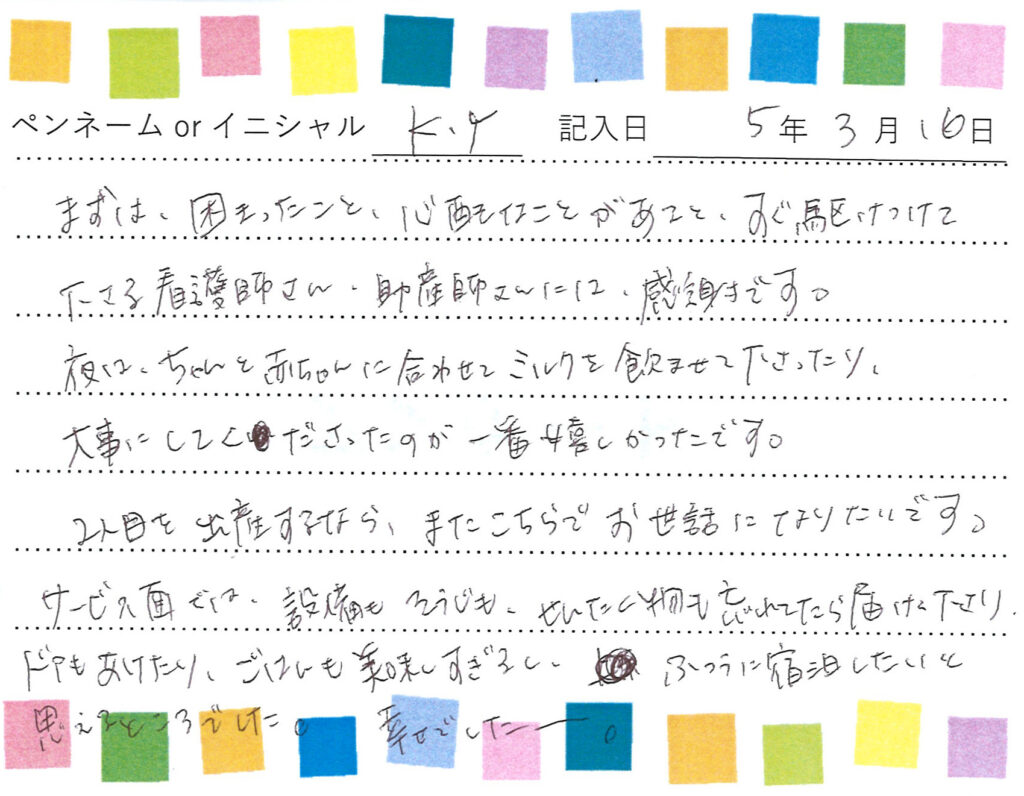 ペンネーム or イニシャル K.Y 記入日 5年3月16日
まずは、困まったこと、心配なことがあると、すぐ駆けつけて
下さる看護師さん・助産師さんには、感謝です。
夜は、ちゃんと赤ちゃんに合わせてミルクを飲ませて下さったり、
大事にしてくださったのが一番嬉しかったです。
2人目を出産するなら、またこちらでお世話になりたいです。
サービス面では、設備もそうじも、せんたく物も忘れてたら届けて下さり、
ドアもあけたり、ごはんも美味しすぎるし、ふつうに宿泊したいと
思えるところでした。 幸せでしたー。